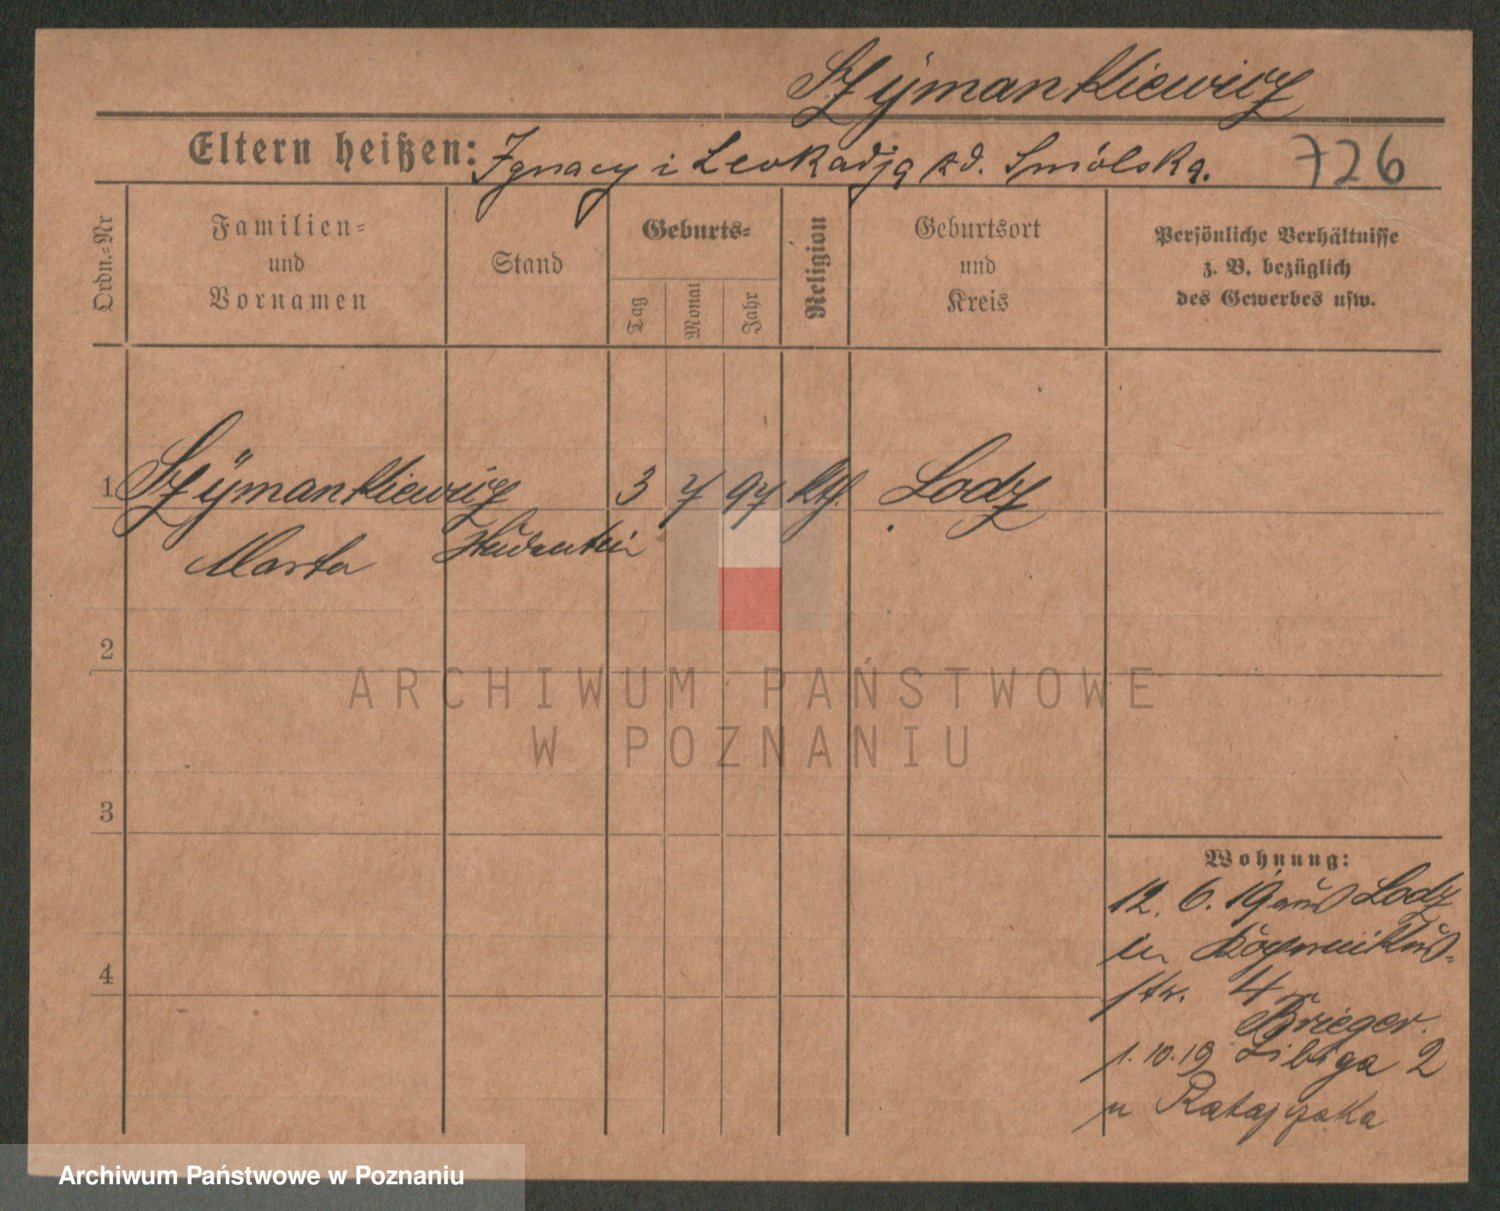 Szÿmankiewicz
Eltern heißen: Ignacy i Leokadja zd. Smólska.
726
Ordn.-Nr
Familien-
und
Vornamen
Stand
Geburts-
Tag
Monat
Jahr
Religion
Geburtsort
und
Kreis
Persönliche Verhältnisse
z. B. bezüglich
des Gewerbes usw.
1 Szÿmankiewicz 3 7 97 kth. Lodz
Marta Studentin
2
ARCHIWUM PAŃSTWOWE
W POZNANIU
3
Wohnung:
12. 6. 19 aus Lodz
in Kopernikus-
str. 4
Brieger.
4
1.10.19 Libiga 2
u Ratajczaka
Archiwum Państwowe w Poznaniu